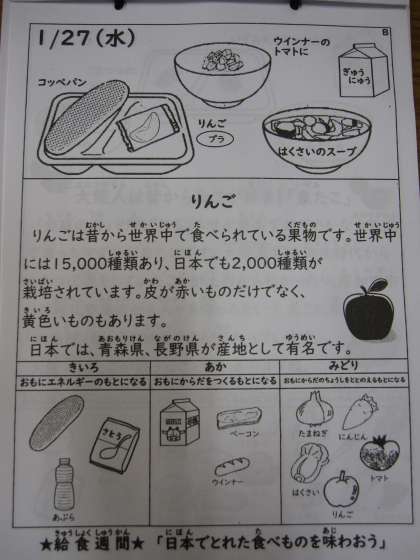 1/27(水)
B
ウインナーの
トマトに
ぎゅう
にゅう
コッペパン
りんご
プラ
はくさいのスープ
りんご
りんごは昔から世界中で食べられている果物です。世界中
には15,000種類あり、日本でも2,000種類が
栽培されています。皮が赤いものだけでなく、
黄色いものもあります。
日本では、青森県、長野県が産地として有名です。
きいろ あか みどり
おもにエネルギーのもとになる おもにからだをつくるもとになる おもにからだのちょうしをととのえるもとになる
さとう
あぶら
ベーコン
ウインナー
たまねぎ
にんじん
トマト
はくさい
りんご
★給食週間★「日本でとれた食べものを味わおう」